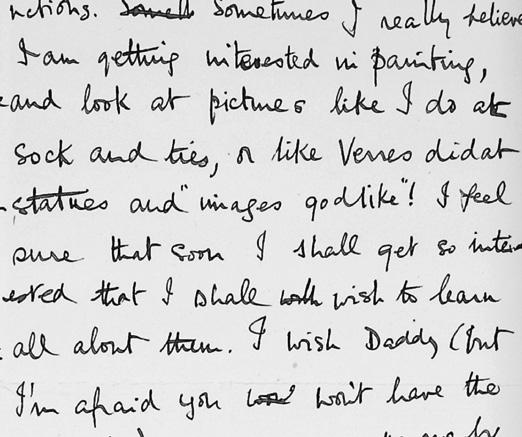 nctions. Sometimes I really believe
I am getting interested in painting,
and look at pictures like I do at
sock and ties, or like Verres did at
statues and "images godlike"! I feel
sure that soon I shall get so inter-
ested that I shall wish to learn
all about them. I wish Daddy (but
I'm afraid you won't have the